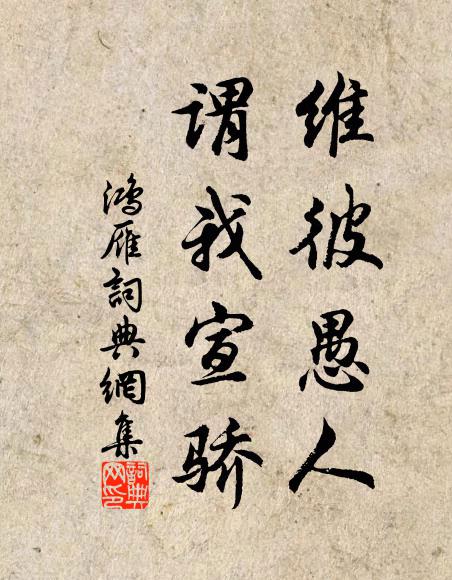 维彼愚人
谓我宣骄
鸿雁詞典網集
詞典网印